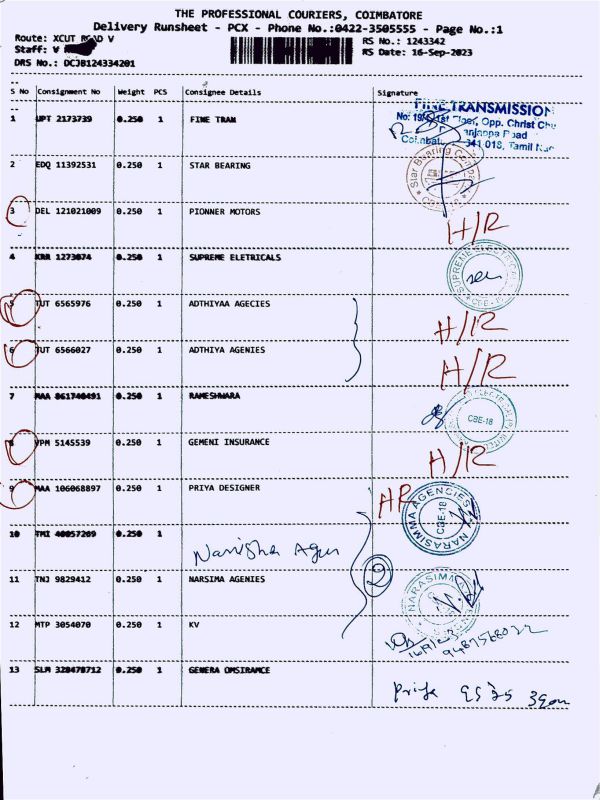 THE PROFESSIONAL COURIERS, COIMBATORE
Delivery Runsheet - PCX - Phone No.:0422-3505555 - Page No.:1
Route: XCUT ROAD V
RS No.: 1243342
Staff: V
RS Date: 16-Sep-2023
DRS No.: DCJB124334201
S No Consignment No Weight PCS Consignee Details Signature
1 UPT 2173739 0.250 1 FINE TRAN
FINE TRANSMISSION
Opp. Christ
Road
641 018, Tamil
2 EDQ 11392531 0.250 1 STAR BEARING
Star Bearing Company
3 DEL 121021009 0.250 1 PIONNER MOTORS
H/R
4 KRR 1273074 0.250 1 SUPREME ELETRICALS
SUPREME ELECTRICAL
5 TUT 6565976 0.250 1 ADTHIYAA AGECIES
H/R
6 TUT 6566027 0.250 1 ADTHIYA AGENIES
H/R
7 MAA 861740491 0.250 1 RAMESHWARA
CBE-18
8 VPM 5145539 0.250 1 GEMENI INSURANCE
H/R
9 MAA 106068897 0.250 1 PRIYA DESIGNER
HR
NARASIMMA AGENCIES
CBE-18
10 TMI 40057269 0.250 1
11 TNJ 9829412 0.250 1 NARSIMA AGENIES
2
NARASIMMA
12 MTP 3054070 0.250 1 KV
13 SLM 320470712 0.250 1 GENERA OMSIRAMCE
Priya